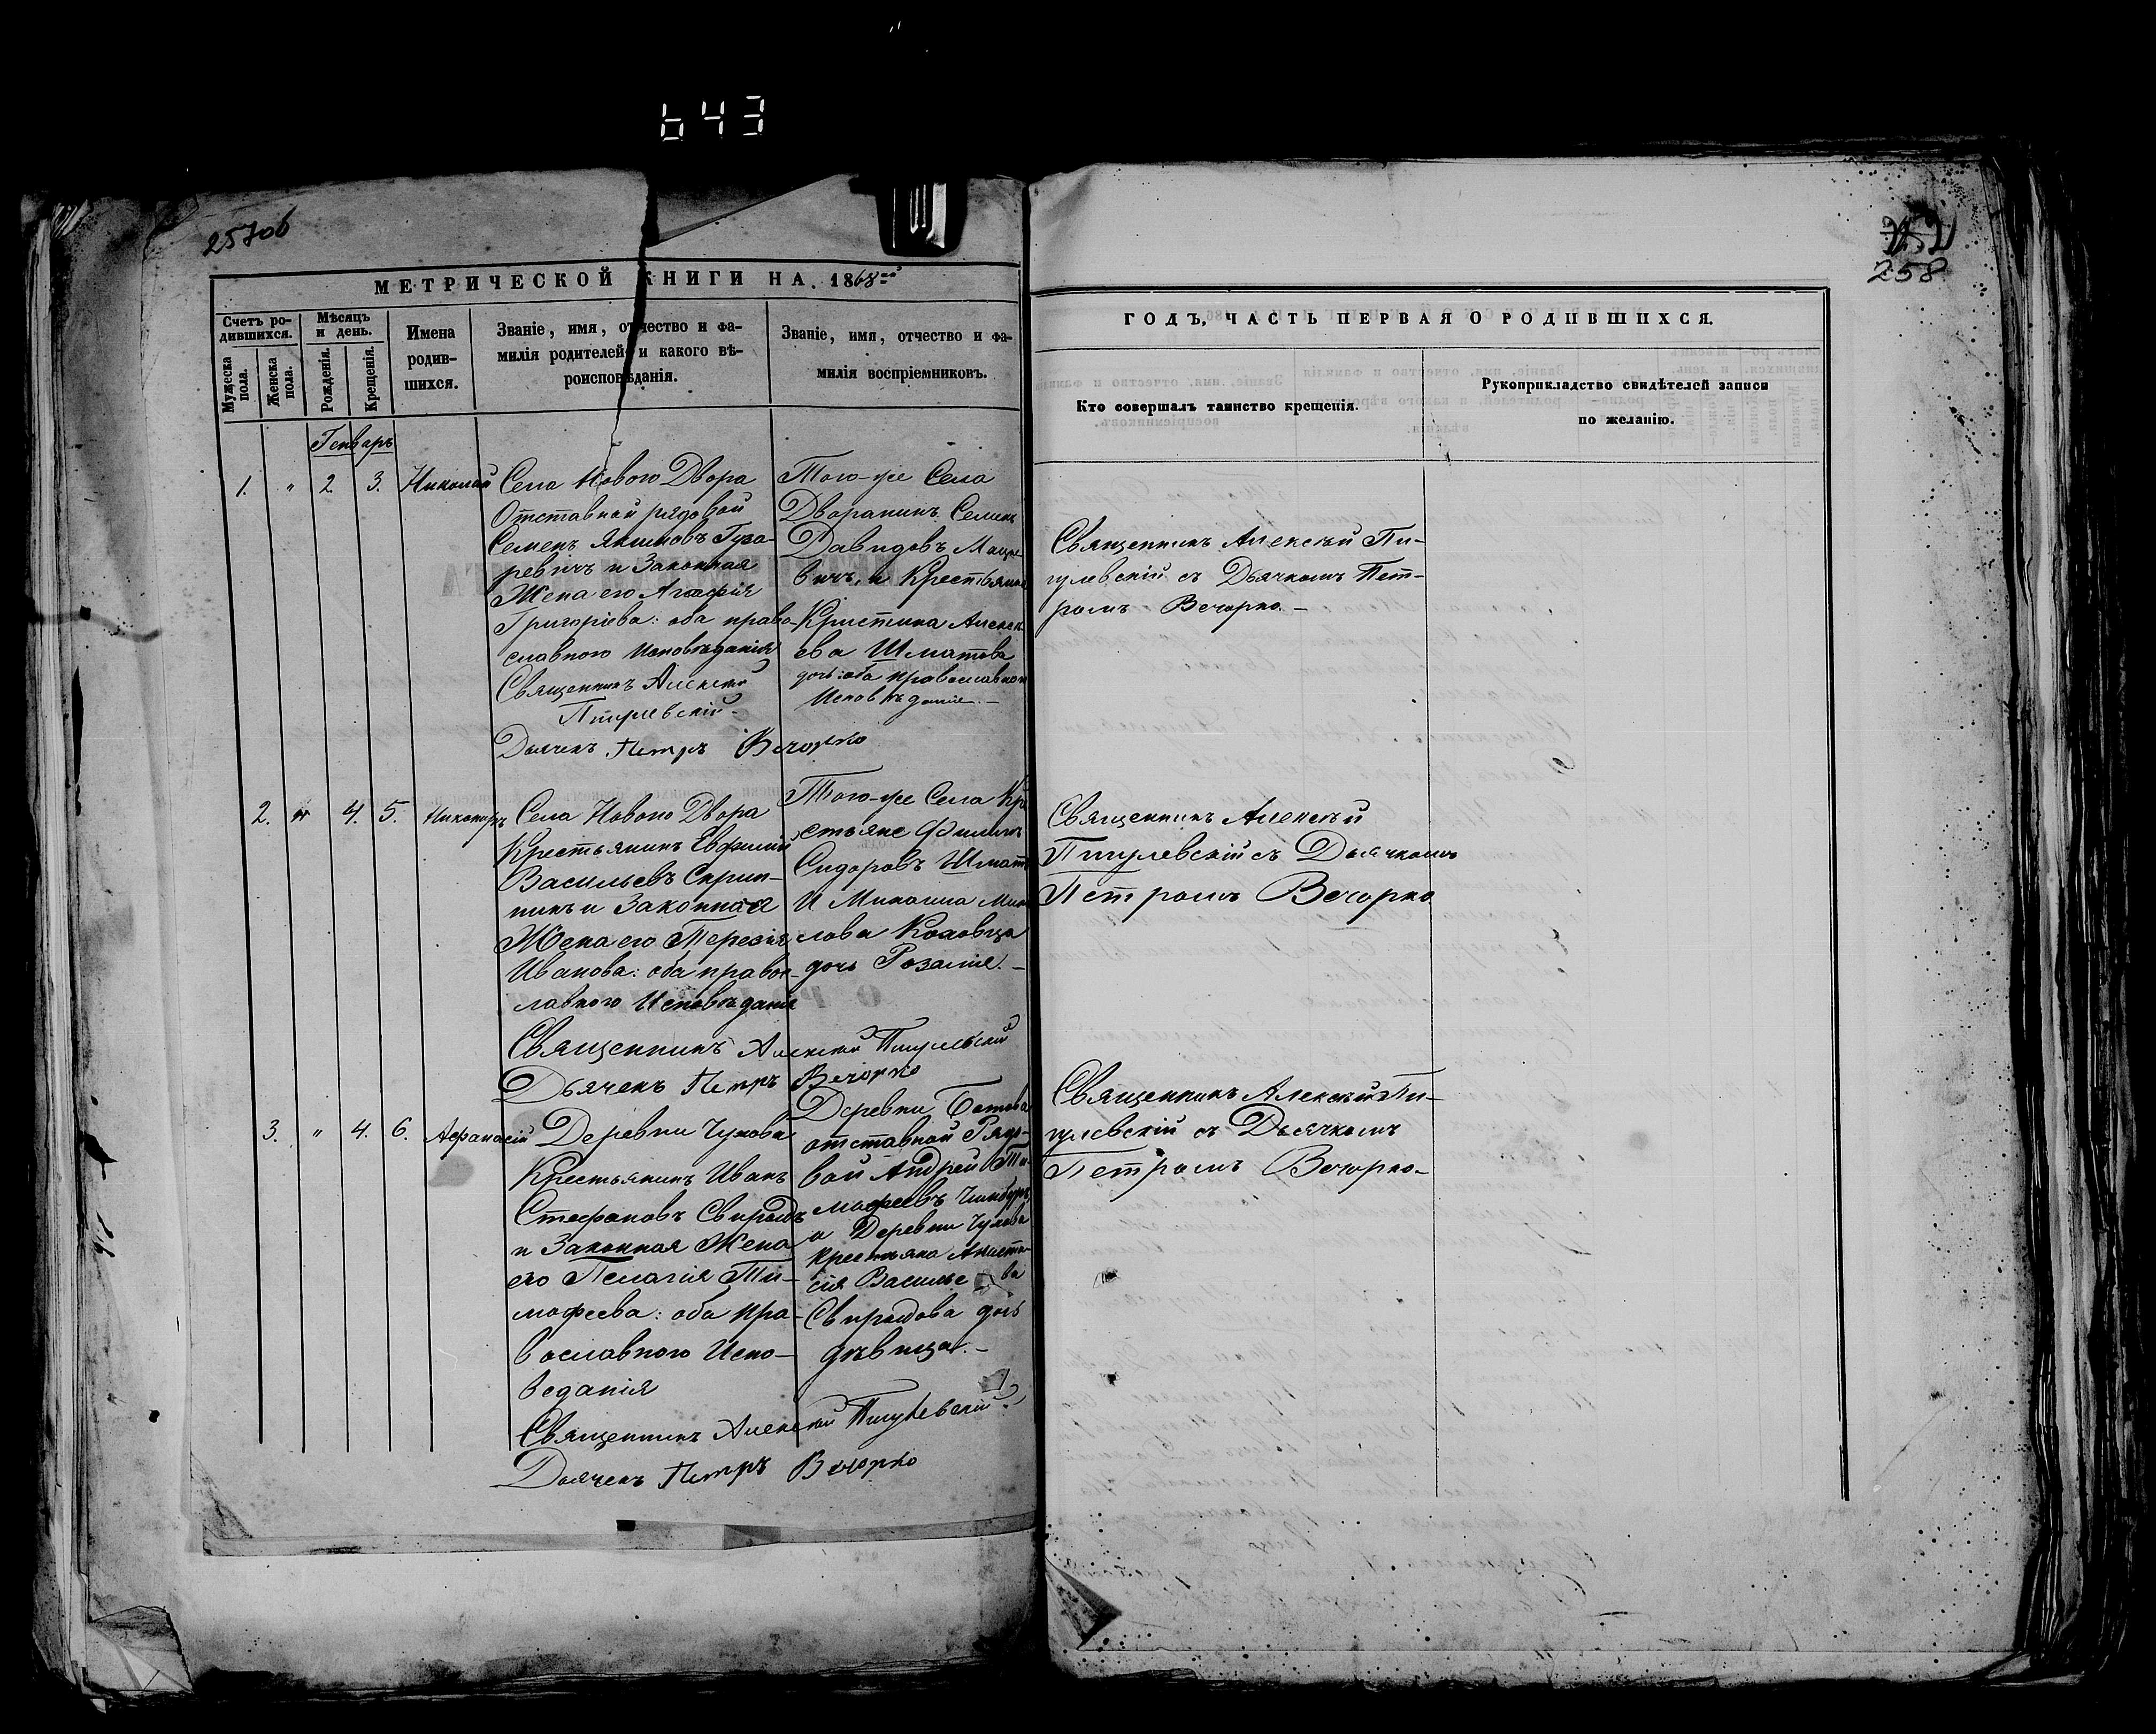 643
257об
252
258
МЕТРИЧЕСКОЙ КНИГИ НА 1868
ГОДЪ, ЧАСТЬ ПЕРВАЯ О РОДИВШИХСЯ.
Счетъ ро-
дившихся.
Мужеска
пола.
Женска
пола.
Мѣсяцъ
и день.
Рожденія.
Крещенія.
Имена
родив-
шихся.
Званіе, имя, отчество и фа-
милія родителей и какого вѣ-
роисповѣданія.
Званіе, имя, отчество и фа-
милія воспріемниковъ.
Кто совершалъ таинство крещенія.
Рукоприкладство свидѣтелей записи
по желанію.
Генварь
1. " 2 3. Николай
Села Нового Двора
Отставной рядовой
Семенъ Якимовъ Гуза-
ревичъ и Законная
Жена его Агафія
Григоріева: оба право-
славного Исповѣданія
Священникъ Алексѣй
Пигулевскій
Дьячекъ Петръ Вечорко
Того-же Села
Дворянинъ Семенъ
Давидовъ
вичъ, и Крестьянка
Кристина Алексѣ
ева Шматова
дочь: оба православного
Исповѣданія.-
Священникъ Алексѣй Пи-
гулевскій съ Дьячкомъ Пет-
ромъ Вечорко.-
2. " 4. 5. Никаноръ
Села Нового Двора
Крестьянинъ Евфимій
Васильевъ Скрип-
никъ и Законная
Жена его Терезія
Иванова: оба правос-
лавного Исповѣданія
Священникъ Алексѣй Пигулевскій
Дьячекъ Петръ Вечорко
Того-же Села Кре
стьяне Филипъ
Сидоровъ Шмат
И
лова
дочь Розалія.-
Священникъ Алексѣй
Пигулевскій съ Дьячкомъ
Петромъ Вечорко
3. " 4. 6. Афанасій
Деревни Чухова
Крестьянинъ Иванъ
Стефановъ Свиридъ
и Законная Жена
его Пелагія Ти-
мофеева: оба пра-
вославного Испо-
веданія
Священникъ Алексѣй Пигулевскій
Дьячекъ Петръ Вечорко
Деревни
отставной Рядо-
вой Андрей Ти-
мофеевъ
и Деревни Чухова
Крестьянка Анаста-
сія Василье ва
Свиридова дочь
дѣвица.-
Священникъ Алексѣй Пи-
гулевскій съ Дьячкомъ
Петромъ Вечорко-